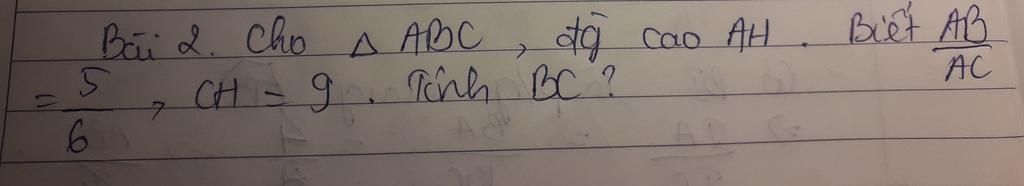 Bài 2. Cho Δ ABC, đg cao AH. Biết AB/AC
= 5/6, CH = 9. Tính BC?